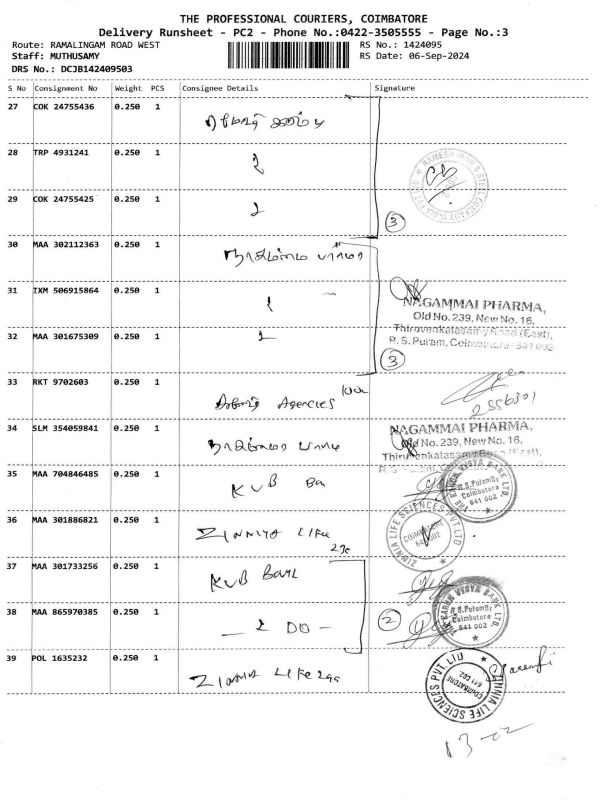 THE PROFESSIONAL COURIERS, COIMBATORE
Delivery Runsheet - PC2 - Phone No.:0422-3505555 - Page No.:3
Route: RAMALINGAM ROAD WEST
RS No.: 1424095
Staff: MUTHUSAMY
RS Date: 06-Sep-2024
DRS No.: DCJB142409503
S No Consignment No Weight PCS Consignee Details Signature
27 COK 24755436 0.250 1
28 TRP 4931241 0.250 1
29 COK 24755425 0.250 1
3
30 MAA 302112363 0.250 1
31 IXM 506915864 0.250 1
NAGAMMAI PHARMA,
Old No. 239, New No. 16,
32 MAA 301675309 0.250 1
Thiruvenkatasamy Road (East),
R. S. Puram, Coimbatore - 641 002
3
33 RKT 9702603 0.250 1
Agencies
2556301
34 SLM 354059841 0.250 1
NAGAMMAI PHARMA,
Old No. 239, New No. 16,
Thiruvenkatasamy Road (East),
35 MAA 704846485 0.250 1
KVB
THE KARUR VYSYA BANK LTD.
R.S.Puram Br
Coimbatore
641 002
36 MAA 301886821 0.250 1
Zinnia Life
ZINNIA LIFE SCIENCES PVT LTD
COIMBATORE
641 002
37 MAA 301733256 0.250 1
KVB Bank
38 MAA 865970385 0.250 1
- 2 DO -
2
THE KARUR VYSYA BANK LTD.
R.S.Puram Br
Coimbatore
641 002
39 POL 1635232 0.250 1
Zinnia Life
ZINNIA LIFE SCIENCES PVT LTD
COIMBATORE
641 002
13-02